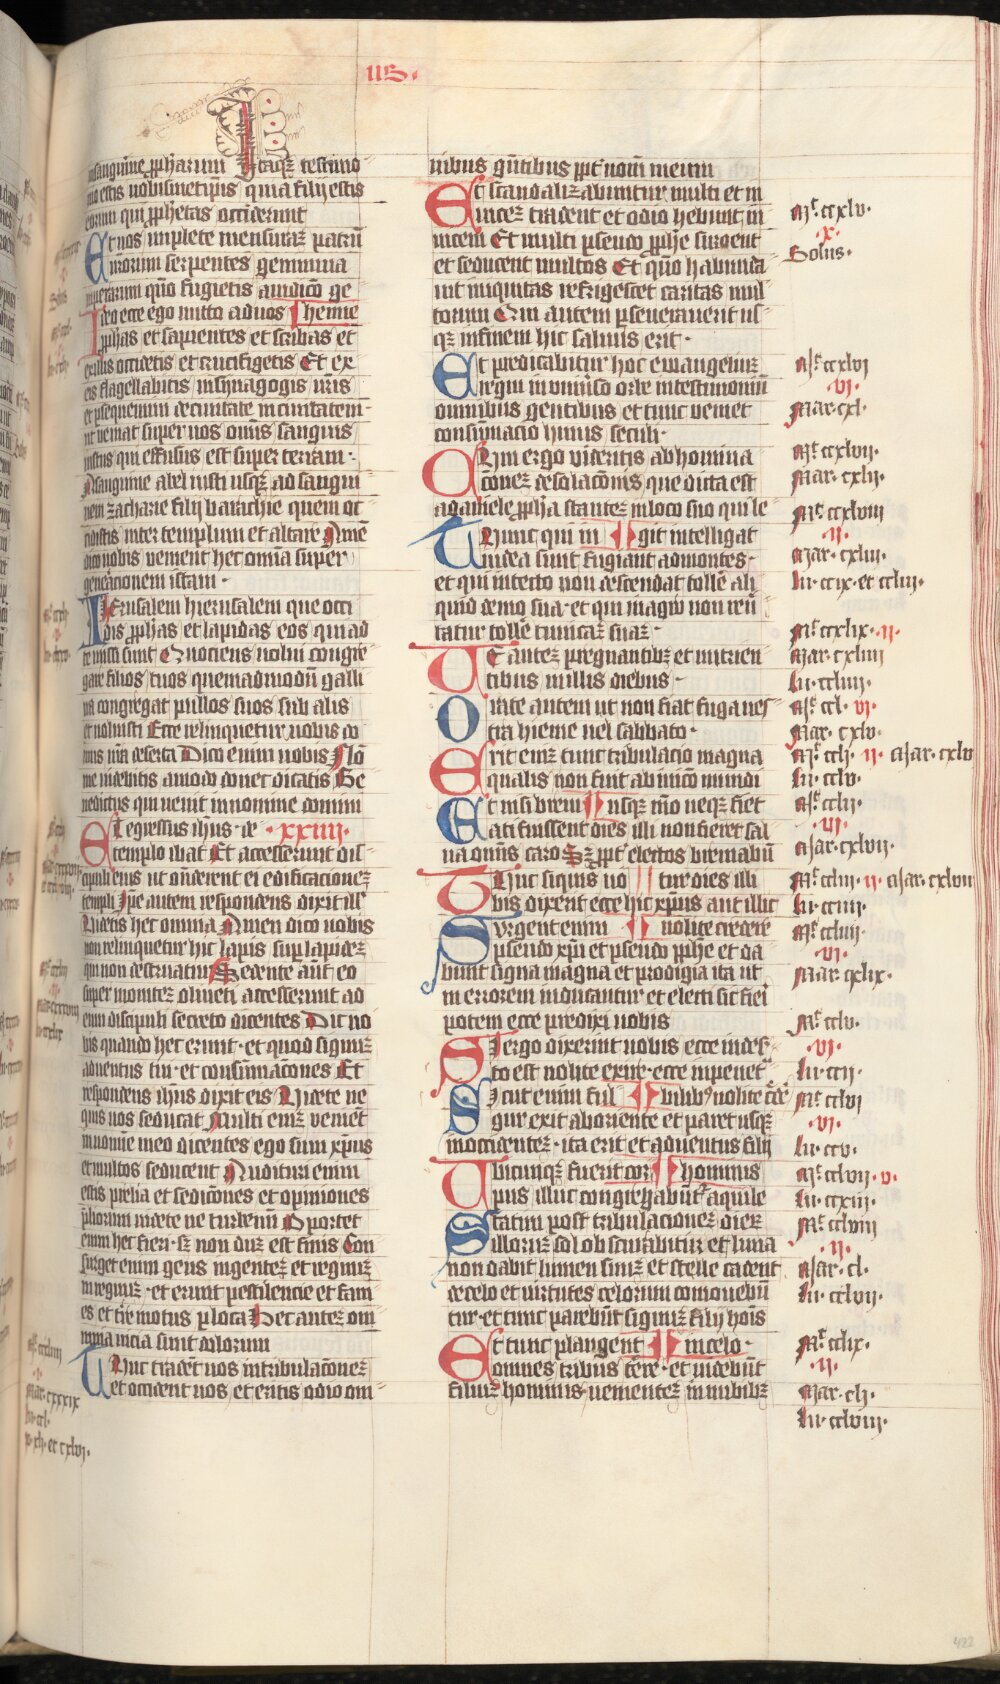 us.
insanguine ꝓpharum Itaqꝫ testimo
nio estis uobismetipis quia filij estis
eorum qui ꝓphetas occiderunt
Et uos implete mensuraꝫ patrū
ur̄orum serpentes genimina
uiperarum quō fugietis aiudicō ge
Ideo ecce ego mitto aduos henne
ꝓphas et sapientes et scribas et
exillis occidetis et crucifigetis Et ex
eis flagellabitis insynagogis ur̄is
et ꝑsequemini deciuitate inciuitatem
ut veniat super uos omīs sanguis
iustus qui effusus est super terram
Asanguine abel iusti usqꝫ ad sangui
nem zacharie filij barachie quem oc
cidistis inter templum et altare Amē
dico uobis venient hec omīa super
gen̄acionem istam
Ierusalem hierusalem que occi
dis ꝓphas et lapidas eos qui ad
te missi sunt Quociens uolui congre
gare filios tuos quemadmodū galli
na congregat pullos suos sub alis
et noluisti Ecce relinquetur uobis do
mus ur̄a deserta Dico enim uobis Nō
me videbitis amodo donec dicatis Be
nedictus qui uenit innomine domini
Et egressus ih̄us de xxiiii
templo ibat Et accesserunt dis
cipuli eius ut oñderent ei edificacioneꝫ
templi Ipe autem respondens dixit ill̄
Videtis hec omnia Amen dico uobis
non relinquetur hic lapis suꝑ lapideꝫ
qui non destruatur Sedente aut̄ eo
super monteꝫ oliueti accesserunt ad
eum discipuli secreto dicentes Dic no
bis quando hec erunt et quod signuꝫ
aduentus tui et consūmacōnes Et
respondens ih̄us dixit eis Videte ne
quis uos seducat Multi enīꝫ venient
innomine meo dicentes ego sum xp̄us
et multos seducent Audituri enim
estis prelia et sedicōnes et opiniones
ꝓliorum videte ne turbemī Oportet
enim hec fieri sꝫ non duꝫ est finis Con
surget enim gens ingenteꝫ et regnuꝫ
inregnuꝫ et erunt pestilencie et fam
es et tr̄e motus ꝑ loca Hec auteꝫ om
nia inicia sunt dolorum
Tunc tradēt uos intribulacōneꝫ
et occident uos et eritis odio om
nibus gn̄tibus ꝓpt̄ nom̄ meum
Et scandalizabuntur multi et in
uiceꝫ tradent et odio hebunt in
uicem Et multi pseudo ꝓphe surgent
et seducent multos Et quō habunda
uit iniquitas refrigescet caritas mul
torum Qui autem ꝑseuerauerit us
qꝫ infinem hic saluus erit
Et predicabitur hoc ewangeliuꝫ
regni in vniuso orbe intestimoniū
omnibus gentibus et tunc veniet
consūmacio huius seculi
Cum ergo videritis abhomina
cōneꝫ desolacōnis que dicta est
adaniele ꝓpha stanteꝫ inloco sco qui le
Tunc qui in git intelligat
iudea sunt fugiant admontes
et qui intecto non descendat tolle ali
quid de domo sua et qui inagro non reu
tatur tolle tunicaꝫ suaꝫ
Ue auteꝫ pregnantibꝫ et nutrien
tibus inillis diebus
Orate autem ut non fiat fuga ues
tra hieme uel sabbato
Erit enīꝫ tunc tribulacio magna
qualis non fuit ab inicō mundi
Et nisi breui usqꝫ mō neqꝫ fiet
ati fuissent dies illi non fieret sal
ua omīs caro Sꝫ ꝓpt̄ electos breuiabū
Tunc siquis uo tur dies illi
bis dixerit ecce hic xp̄us aut illic
Surgent enim nolite credere
pseudo xp̄i et pseudo ꝓphe et da
bunt signa magna et prodigia ita ut
in errorem inducantur et electi si fieri
potem ecce predixi uobis
Si ergo dixerint uobis ecce indes
to est nolite exire ecce inpenet̄
Sicut enim ful bilibꝫ nolite c̄de
gur exit aboriente et paret usqꝫ
inoccidenteꝫ ita erit et aduentus filij
Ubicunqꝫ fuerit cor hominis
pus illuc congregabūt aquile
Statim post tribulacioneꝫ dieꝝ
illorum sol obscurabitur et luna
non dabit lumen suuꝫ et stelle cadent
decelo et virtutes celorum comouebū
tur et tunc parebūt signuꝫ filij hoīs
Et tunc plangent incelo
omnes tribus terre et uidebūt
filiuꝫ hominis uementeꝫ in nubibꝫ
Mt ccxlv
x
Solus
Mt ccxlvi
vi
Mar cxl
Mt ccxlvii
Mar cxlij
Mt ccxlviii
ii
Mar cxliii
Lu ccix et ccliij
Mt ccxlix ii
Mar cxliiii
Lu ccliiij
Mt ccl vi
Mar cxlv
Mt cclj ii Mar cxlvi
Lu cclv
Mt cclij
vi
Mar cxlvii
Mt ccliii ii Mar cxlviii
Mt ccliiij
vi
Mar cxlix
Mt cclv
vi
Lu ccij
Mt cclvi
vi
Lu ccv
Mt cclvii v
Lu ccxiii
Mt cclviii
ii
Mar cl
Lu cclvii
Mt cclix
ii
Mar clj
Lu cclviii
Mar cxxxix
xlj et cxlvj
422